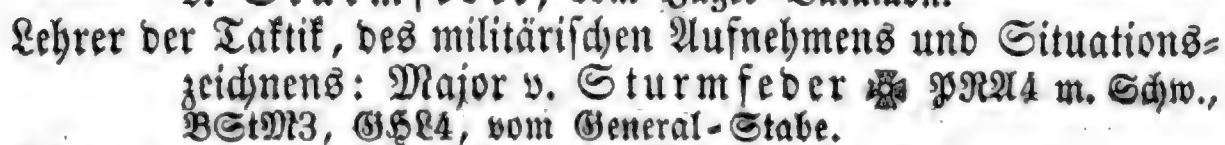 Lehrer der Taktik, des militärischen Aufnehmens und Situations-
zeichnens: Major v. Sturmfeder ✠ PRA4 m. Schw.,
BStM3, GHL4, vom General-Stabe.